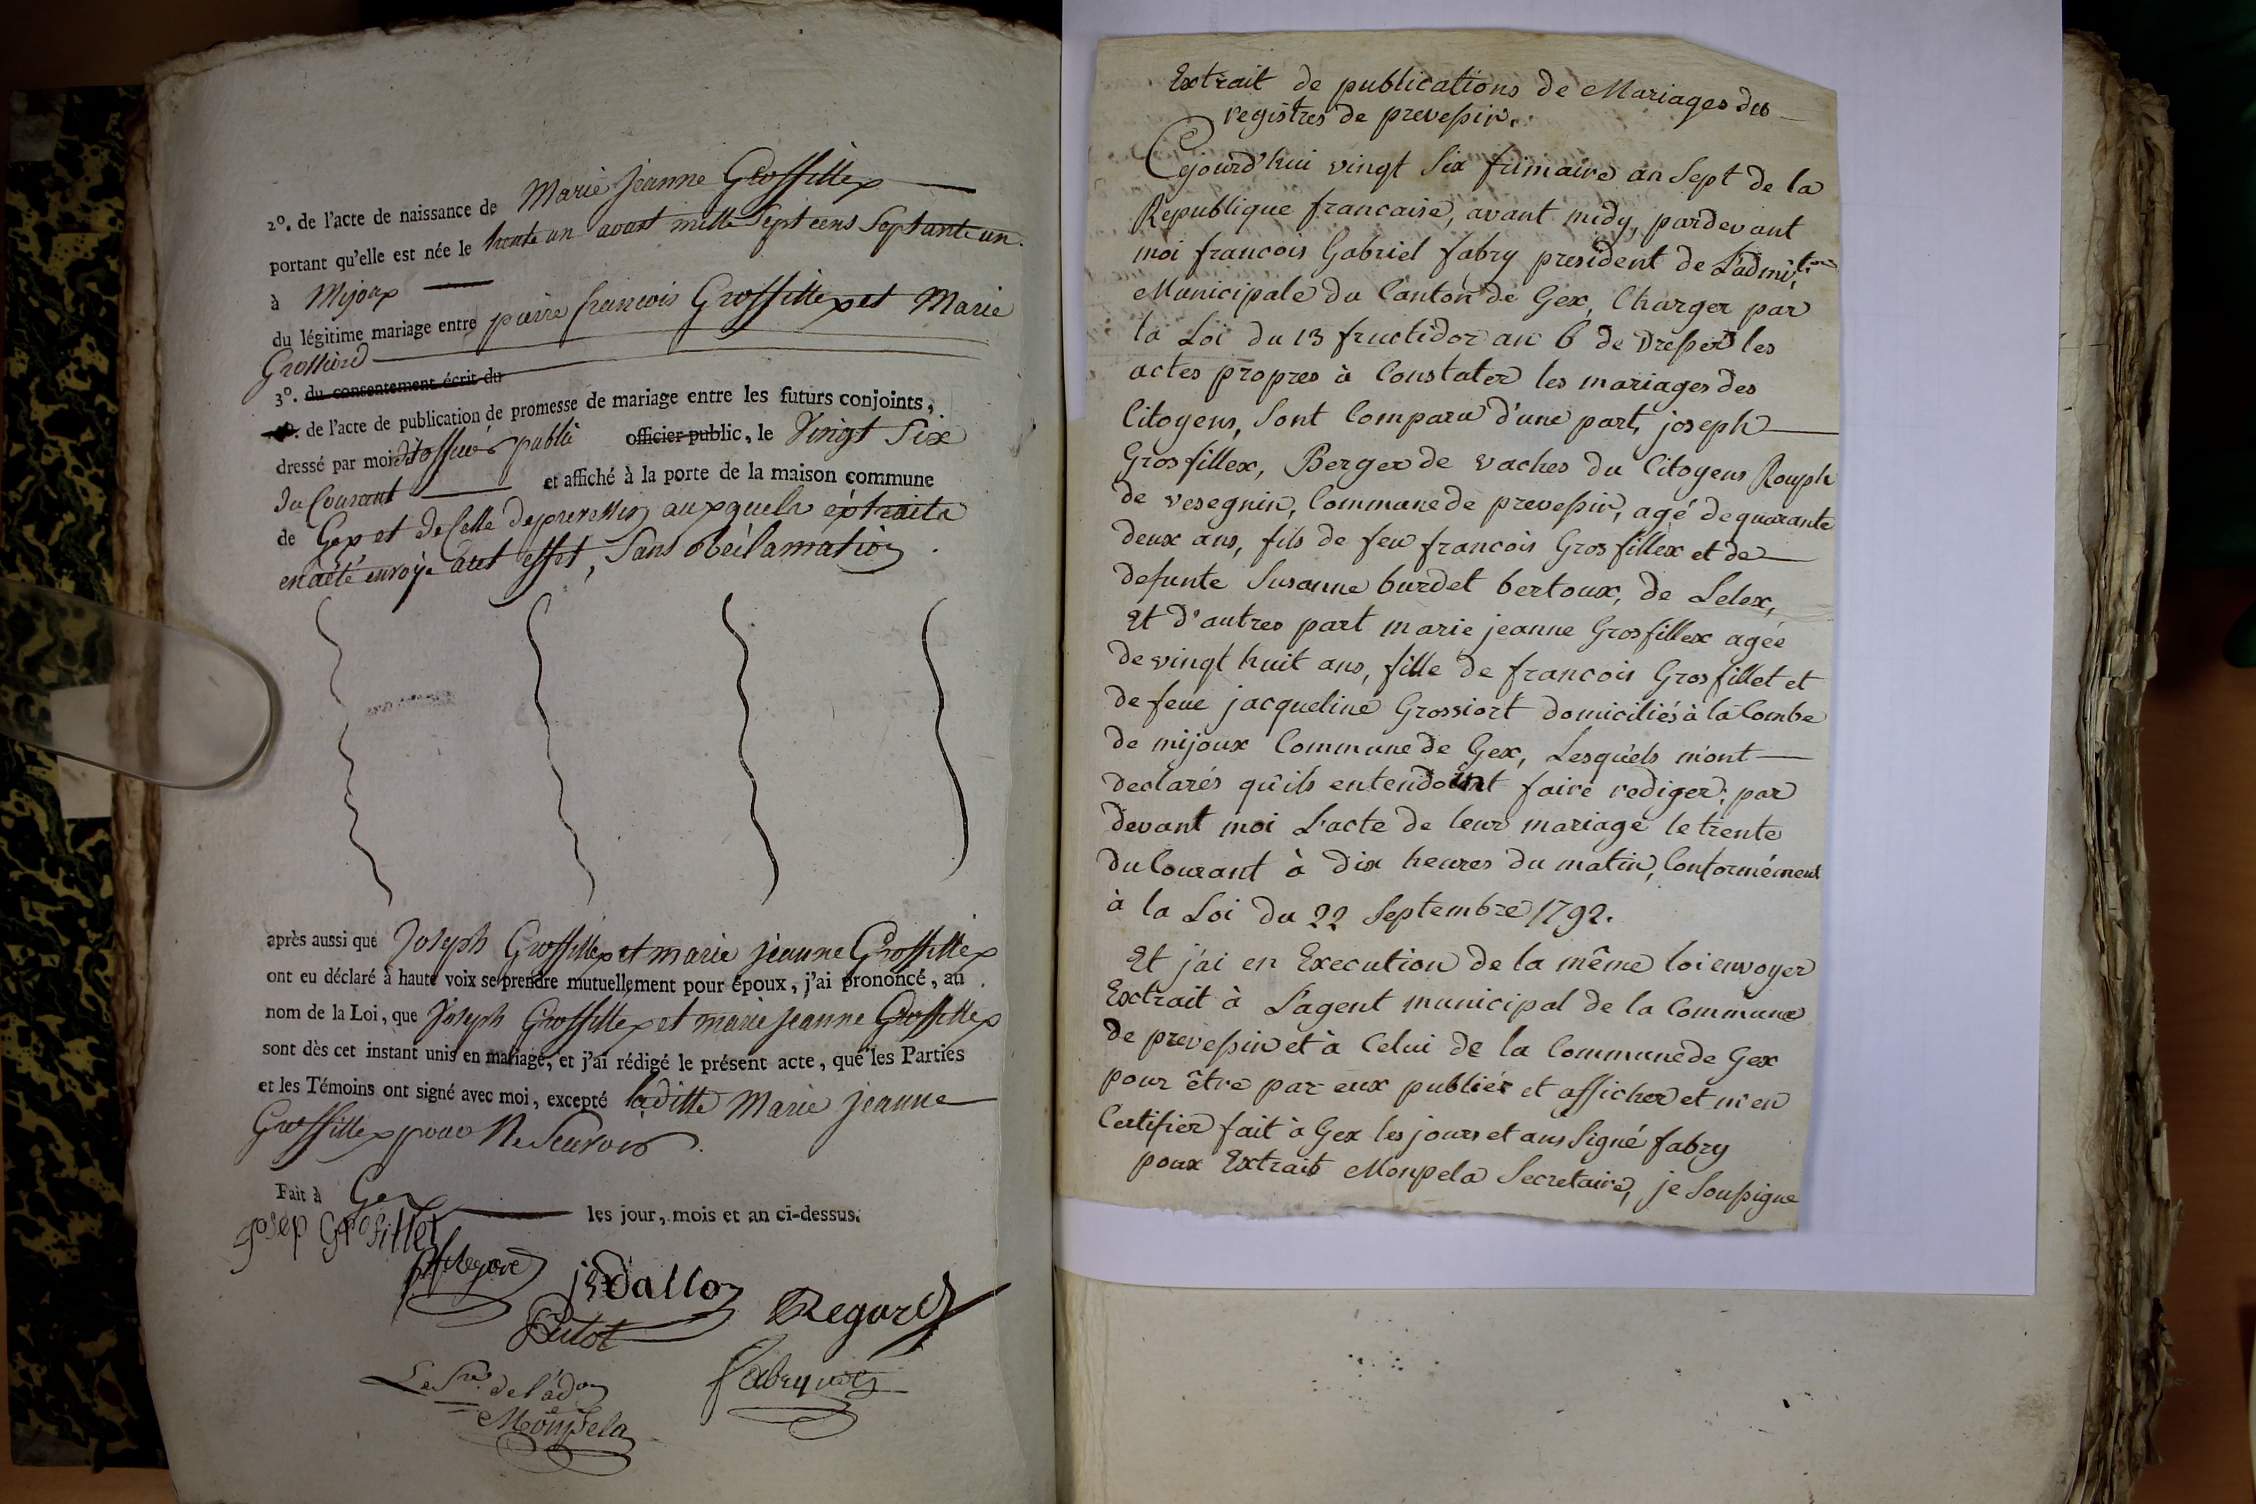 2º. de l'acte de naissance de Marie Jeanne Grosfillex
portant qu'elle est née le trente un aoust mille Sept cens Septante un.
à Mijoux
du légitime mariage entre pierre francois Grosfillex et Marie
Grossiord
3º. du consentement écrit du
de l'acte de publication de promesse de mariage entre les futurs conjoints,
dressé par moi dit officier public officier public, le Vingt Six
du Courant et affiché à la porte de la maison commune
de Gex et de Celle de prevessin auxquels extraits
en a été envoyé a cet effet, Sans réclamation
après aussi que Joseph Grosfillex et marie jeanne Grosfillex
ont eu déclaré à haute voix se prendre mutuellement pour époux, j'ai prononcé, au
nom de la Loi, que Joseph Grosfillex et marie jeanne Grosfillex
sont dès cet instant unis en mariage, et j'ai rédigé le présent acte, que les Parties
et les Témoins ont signé avec moi, excepté laditte Marie jeanne
Grosfillex pour Ne Scavoir.
Fait à Gex les jour, mois et an ci-dessus.
Josep Grosfillet
Dalloz
Regard
Le Sre. de l'adon
Monpela
Extrait de publications de Mariages des
registres de prevessin.
Cejourd'hui vingt Six frimaire an Sept de la
Republique francaise, avant midy, pardevant
moi francois Gabriel fabry president de L'admi.tion
Municipale du Canton de Gex, Charger par
la Loi du 13 fructidor an 6 de Dresser les
actes propres à Constater les mariages des
Citoyens, Sont Comparu d'une part, joseph
Grosfillex, Berger de vaches du Citoyens Rouph
de vesegnin, Commune de prevessin, agé de quarante
deux ans, fils de feu francois Grosfillex et de
defunte Susanne burdet bertoux, de Lelex,
Et d'autres part marie jeanne Grosfillex agée
de vingt huit ans, fille de francois Grosfillet et
de feue jacqueline Grossiort domiciliés à la Combe
de mijoux Commune de Gex, Lesquels m'ont
declarés qu'ils entendoint faire rediger par
devant moi L'acte de leur mariage le trente
du Courant à Dix heures du matin, Conformément
à la Loi du 22 Septembre 1792.
Et j'ai en Execution de la même loi envoyer
Extrait à L'agent municipal de la Commune
de prevessin et à Celui de la Commune de Gex
pour être par eux publiér et afficher et m'en
Certifier fait à Gex les jours et ans Signé fabry
pour Extrait Monpela Secretaire, je Soussigne